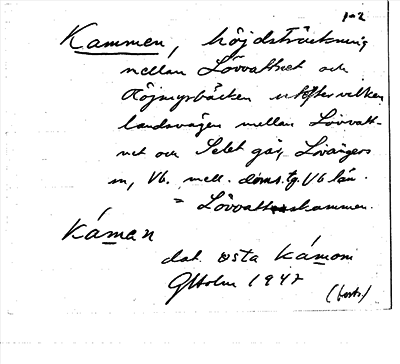 1-2
Kammen, höjdsträckning
mellan Lövvattnet och
Röjmyrbäcken utefter vilken
landsvägen mellan Lövvatt-
net och Selet går, Lövångers
sn, Vb. mell. doms. tg. Vb län.
= Lövvattenskammen.
Káman
dat. østa kámom
GHolm 1947
(forts.)